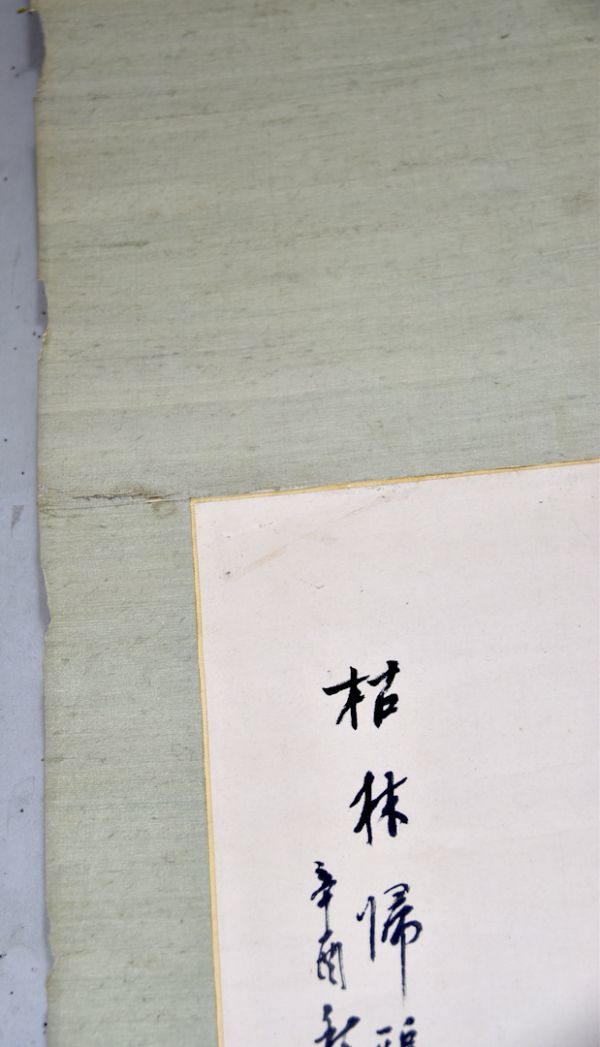 枯林歸
辛酉秋